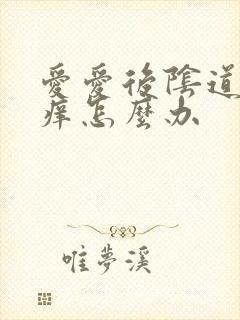 愛愛後陰道
癢怎麼办
唯夢溪